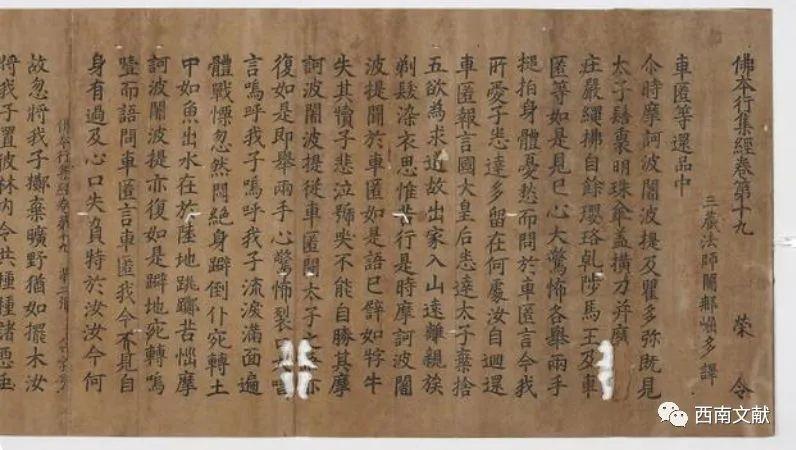 佛本行集經卷第十九 榮 令
三藏法師闍那崛多譯
車匿等還品中
尒時摩訶波闍波提及瞿多弥既見
太子髻裹明珠傘盖撗刀并
庄嚴繩拂自餘瓔珞乹陟馬王及車
匿等如是見已心大驚怖各舉兩手
搥拍身體憂愁而問於車匿言今我
所愛子悉達多留在何處汝自迴還
車匿報言國大皇后悉達太子棄捨
五欲為求道故出家入山遠離親族
剃髮染衣思惟苦行是時摩訶波闍
波提聞於車匿如是語已譬如牸牛
失其犢子悲泣號哭不能自勝其摩
訶波闍波提從車匿聞太子 亦
復如是即舉兩手心驚怖裂口
言嗚呼我子嗚呼我子流淚滿面遍
體戰慄忽然悶絕身躃倒仆宛轉土
中如魚出水在於陸地跳躑苦惱摩
訶波闍波提亦復如是躃地宛轉嗚
噎而語問車匿言車匿我今不見自
身有過及心口失負持於汝汝今何
佛本行集經卷第十九 第二張
故忽將我子擲棄曠野猶如擺木汝
將我子置彼林內令共種種諸惡虫
西南文献